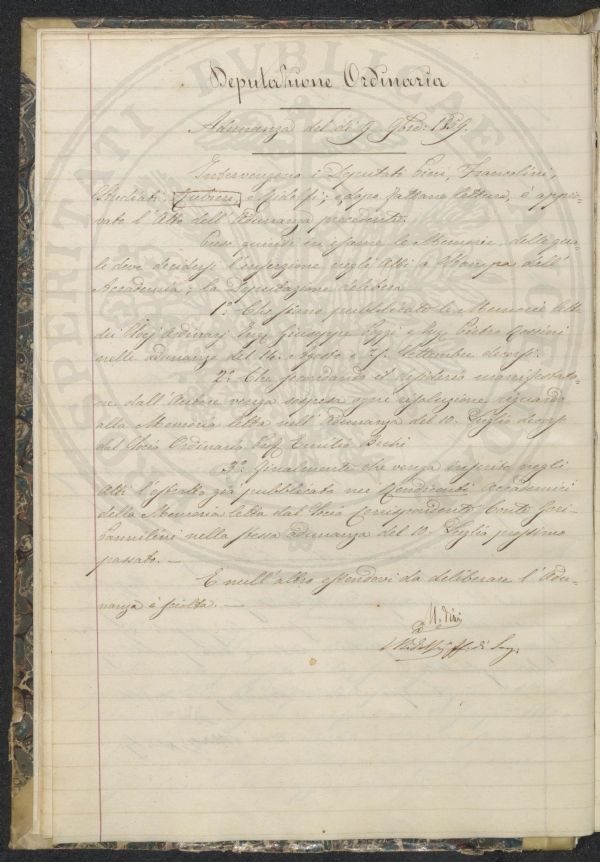 Deputazione Ordinaria
Adunanza del dì 9 9bre: 1859.
Intervengono i Deputati Cieri, Francolini,
Studiati, e Ridolfi; e dopo fattane lettura, è appro-
vato l'Atto dell'Adunanza precedente.
Prese quindi in esame le Memorie, delle qua-
li deve decidersi l'inserzione negli Atti a Stampa dell'
Accademia; la Deputazione delibera
1°. Che siano pubblicate le Memorie lette
dai Socj Ordinarj Giuseppe e Pietro
nelle adunanze del 14. Agosto e Settembre decorsi.
2°. Che secondando il desiderio manifestato-
ne dall'Autore venga sospesa ogni risoluzione riguardo
alla Memoria letta nell'Adunanza del 10. Luglio decorso
dal Socio Ordinario Prof. Emilio Bechi
3°. Finalmente che venga inserito negli
Atti l'estratto già pubblicato nei Rendiconti Accademici
della Memoria letta dal Socio Corrispondente Conte Gori-
Pannilini nella stessa adunanza del 10 Luglio prossimo
passato. —
E null'altro essendovi da deliberare l'Adu-
nanza è sciolta. —